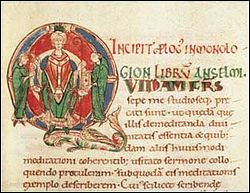 INCIPIT PLOG' IN MONOLO
GION LIBRŪ ANSELMI.
UIDAM FRS
sepe me studioseq; p̄cati
sunt. ut quedā de
illis de meditanda diui
nitatis essentia & quibꝰ
dam aliis huius modi
meditationi coherentibꝰ; usitato sermone collo
quendo protuleram. sub quodā eis meditationis
exemplo describerem. Cuius scilicet scribende